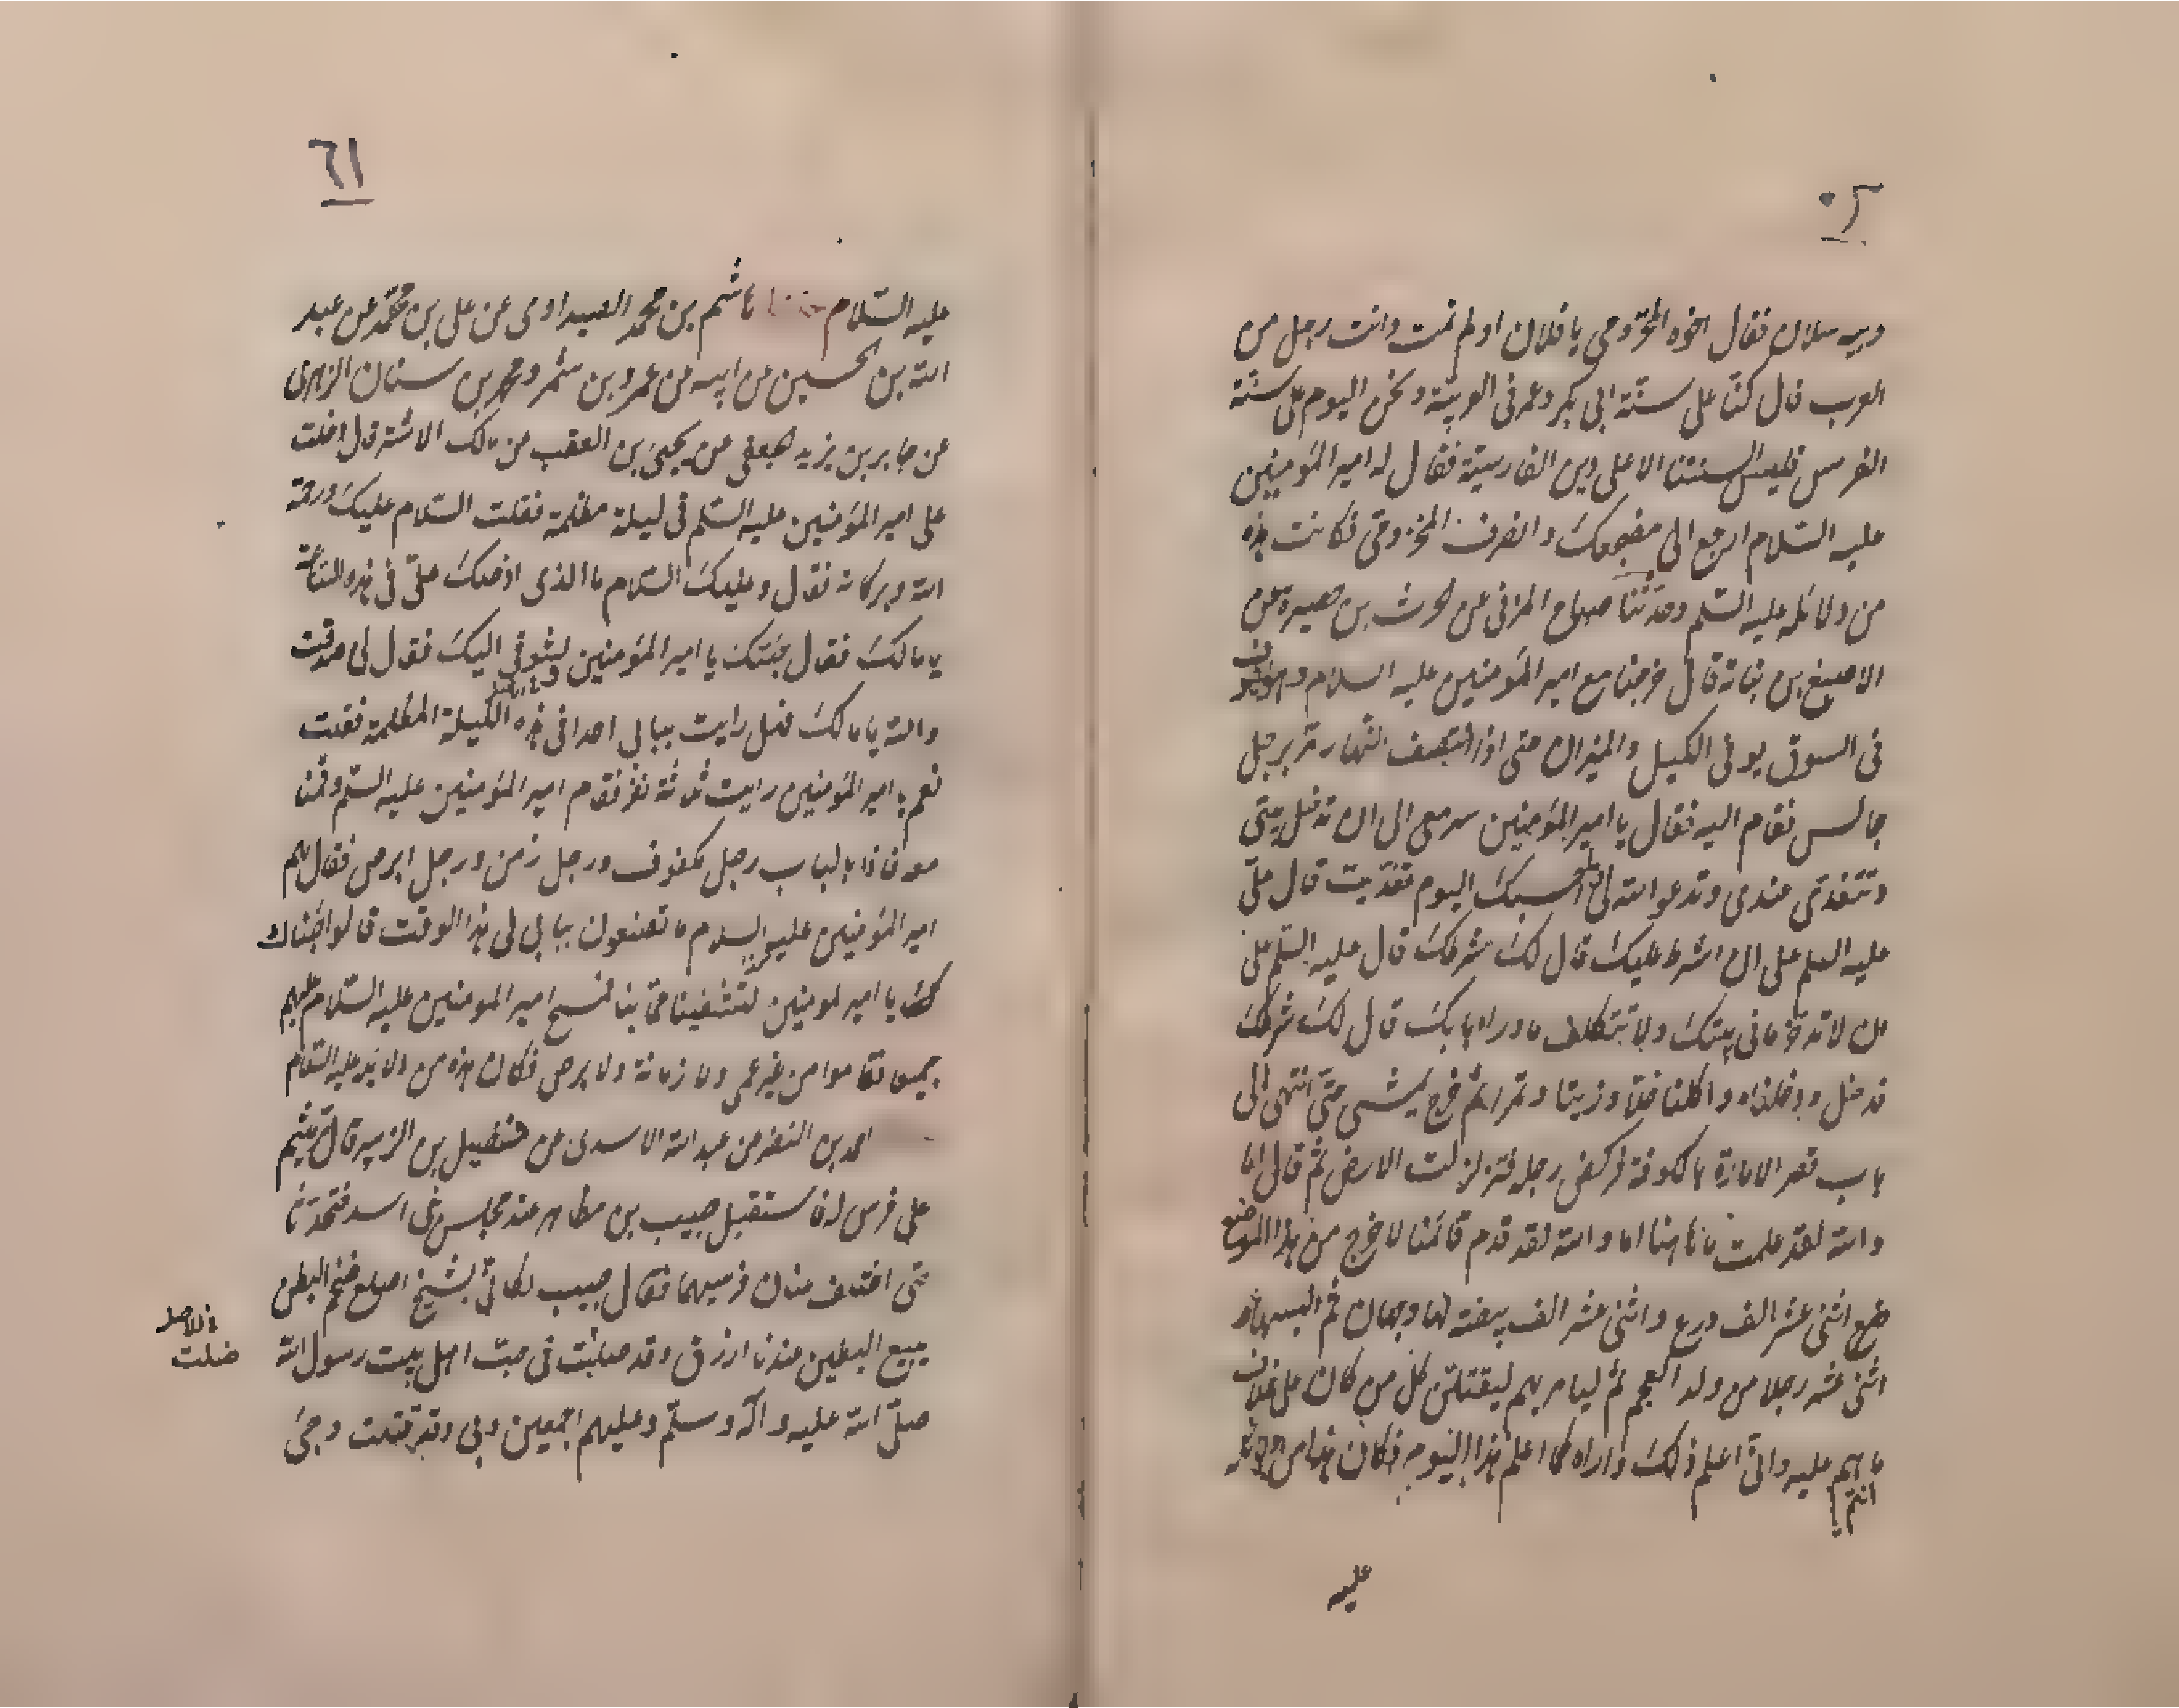 فقال اخوه المخزومي يا فلان اولم تمت وانت رجل من
العرب قال كنا على سنة ابى بكر وعمر فى العربية ونحن اليوم على سنة
الفرس فليس السنتنا الا على دين الفارسية فقال له امير المؤمنين
عليه السلام ارجع الى مضجعك وانصرف المخزومى فكانت هذه
من دلائله عليه السلم وحدثنا صباح المزنى عن لحرث بن حصيرة عن
الاصبغ بن نباته قال خرجنا مع امير المؤمنين عليه السلام وهو يطوف
فى السوق يوفى الكيل والميزان حتى اذا انتصف النهار مر برجل
جالس فقام اليه فقال يا امير المؤمنين سر معى الى ان تدخل بيتى
وتتغذى عندى وتدعو الله لى احسبك اليوم تغذيت قال على
عليه السلم على ان اشرط عليك قال لك شرطك قال عليه السلم على
ان لا تدخر ما فى بيتك ولا تتكلف ما وراء بابك قال لك شرطك
فدخل ودخلناه واكلنا خلا وزيتا وتمرا ثم خرج يمشى حتى انتهى الى
باب قصر الامارة بالكوفة فركض رجله فتزلزلت الارض ثم قال اما
والله لقد علمت ما هاهنا اما والله لقد قدم قائمنا لاخرج من هذا الموضع
اثنى عشر الف درع واثنى عشر الف بيضة لها وجهان ثم البسها
اثنى عشر رجلا من ولد العجم ثم ليامر بهم ليقتلن كل من كان على خلاف
ما هم عليه وانى اعلم ذلك واراه كما اعلم هذا اليوم فكان هذا من
انتم
عليه
٦١
عليه السلام هاشم بن محمد الصيداوى عن على بن محمد عن عبد
الله بن الحسين عن ابيه عن عمرو بن شمر ومحمد بن سنان الزهرى
عن جابر بن يزيد لجعفى عن يحيى بن العقب عن مالك الاشتر قال دخلت
على امير المؤمنين عليه السلم فى ليلة مظلمة فقلت السلام عليك ورحمة
الله وبركاته فقال وعليك السلام ما الذى ادخلك على فى هذه الساعة
يا مالك فقال جئتك يا امير المؤمنين وشوقى اليك فقال لى صدقت
والله يا مالك فهل رايت ببابى احدا فى هذه الليلة المظلمة فقلت
نعم يا امير المؤمنين رايت ثلاثة نفر فقام امير المؤمنين عليه السلم وقمنا
معه فاذا بالباب رجل مكفوف ورجل زمن ورجل ابرص فقال لهم
امير المؤمنين عليه السلام ما تصنعون ببابى فى هذا الوقت قالوا جئناك
يا امير لمومنين لتشفينا مما بنا فمسح امير المومنين عليه السلام عليهم
جميعا فقاموا من غير عمى ولا زمانة ولا برص فكان هذه من دلائله عليه السلام
احمد بن النضر عن عبد الله الاسدى عن فضيل بن الزبير قال مر ميثم
على فرس له فاستقبل حبيب بن مظاهر عند مجلس بنى اسد فتحدثا
حتى اختلف عنان فرسيهما فقال حبيب لكانى بشيخ اصلع ضخم البطن
يبيع البطيخ عند دار ارزق وقد صلبت فى حب اهل بيت رسول الله
صلى الله عليه واله وسلم وعليهم اجمعين وبى وقد قتلت وجئ